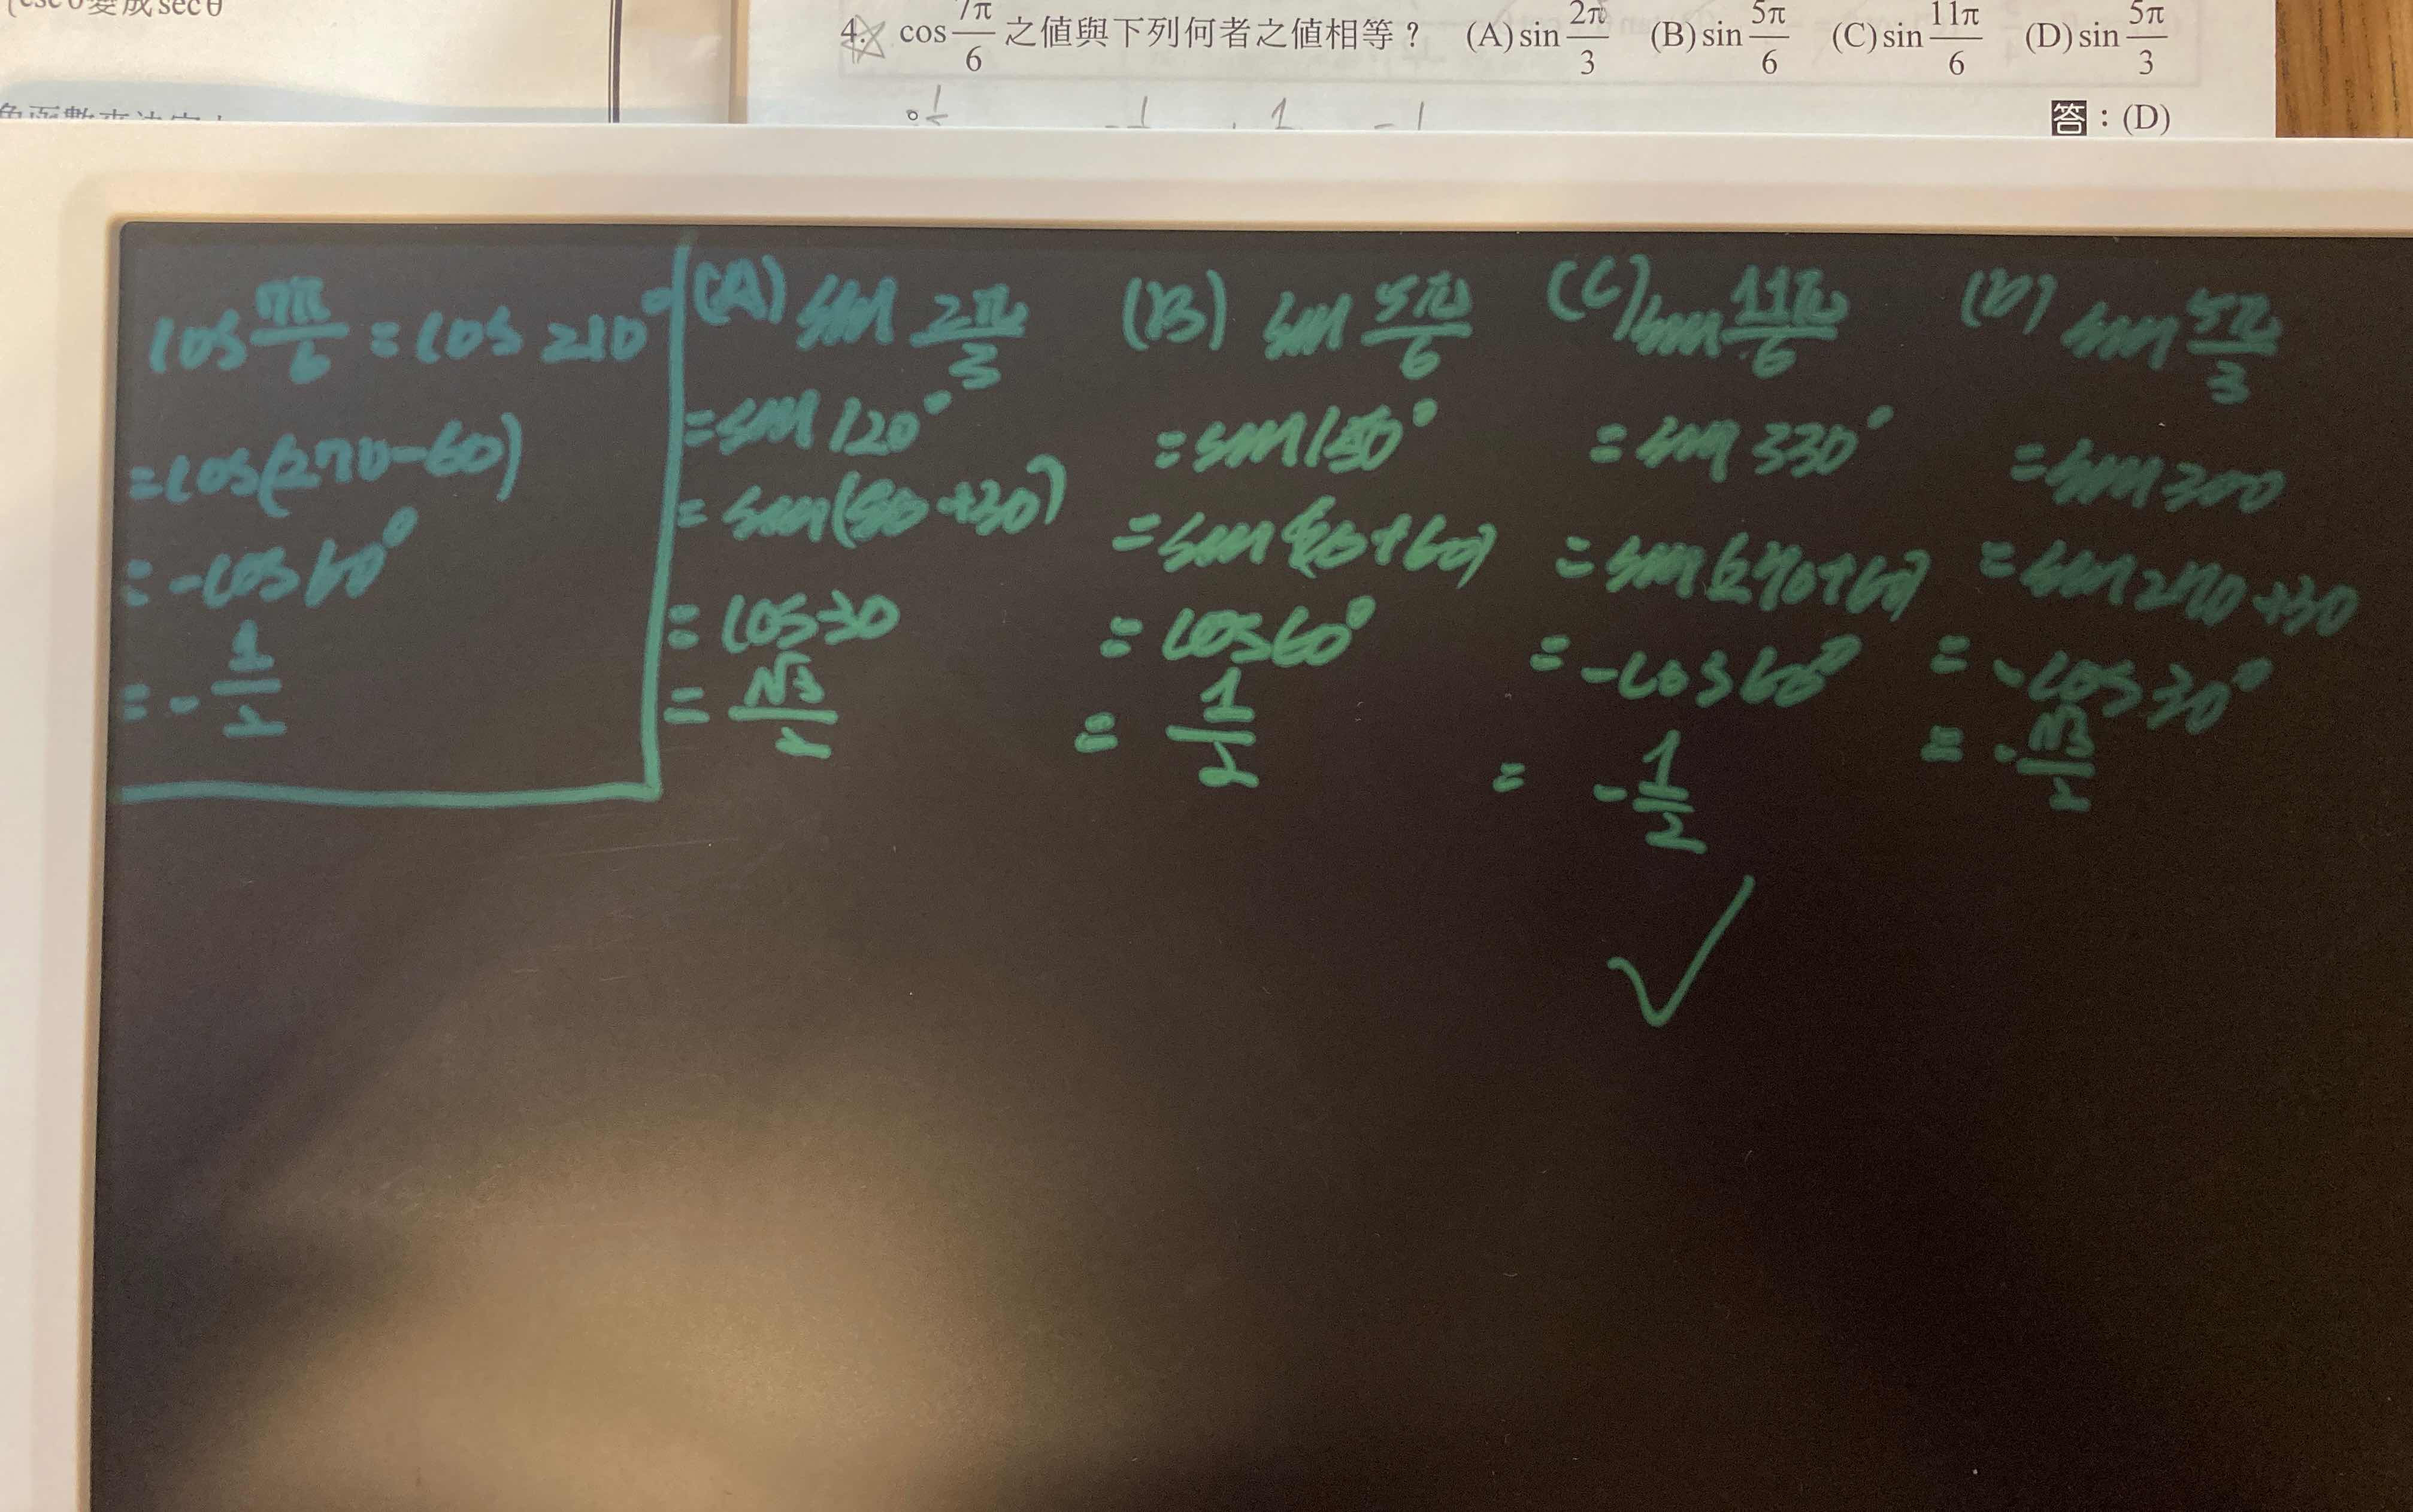 (csc θ變成sec θ
4. cos 7π/6 之值與下列何者之值相等? (A) sin 2π/3 (B) sin 5π/6 (C) sin 11π/6 (D) sin 5π/3
答:(D)
cos 7π/6 = cos 210°
= cos(270-60)
= -cos 60°
= - 1/2
(A) sin 2π/3
= sin 120°
= sin(90+30)
= cos 30
= √3/2
(B) sin 5π/6
= sin 150°
= sin(90+60)
= cos 60°
= 1/2
(C) sin 11π/6
= sin 330°
= sin(270+60)
= -cos 60°
= - 1/2
(D) sin 5π/3
= sin 300
= sin 270+30
= -cos 30°
= - √3/2